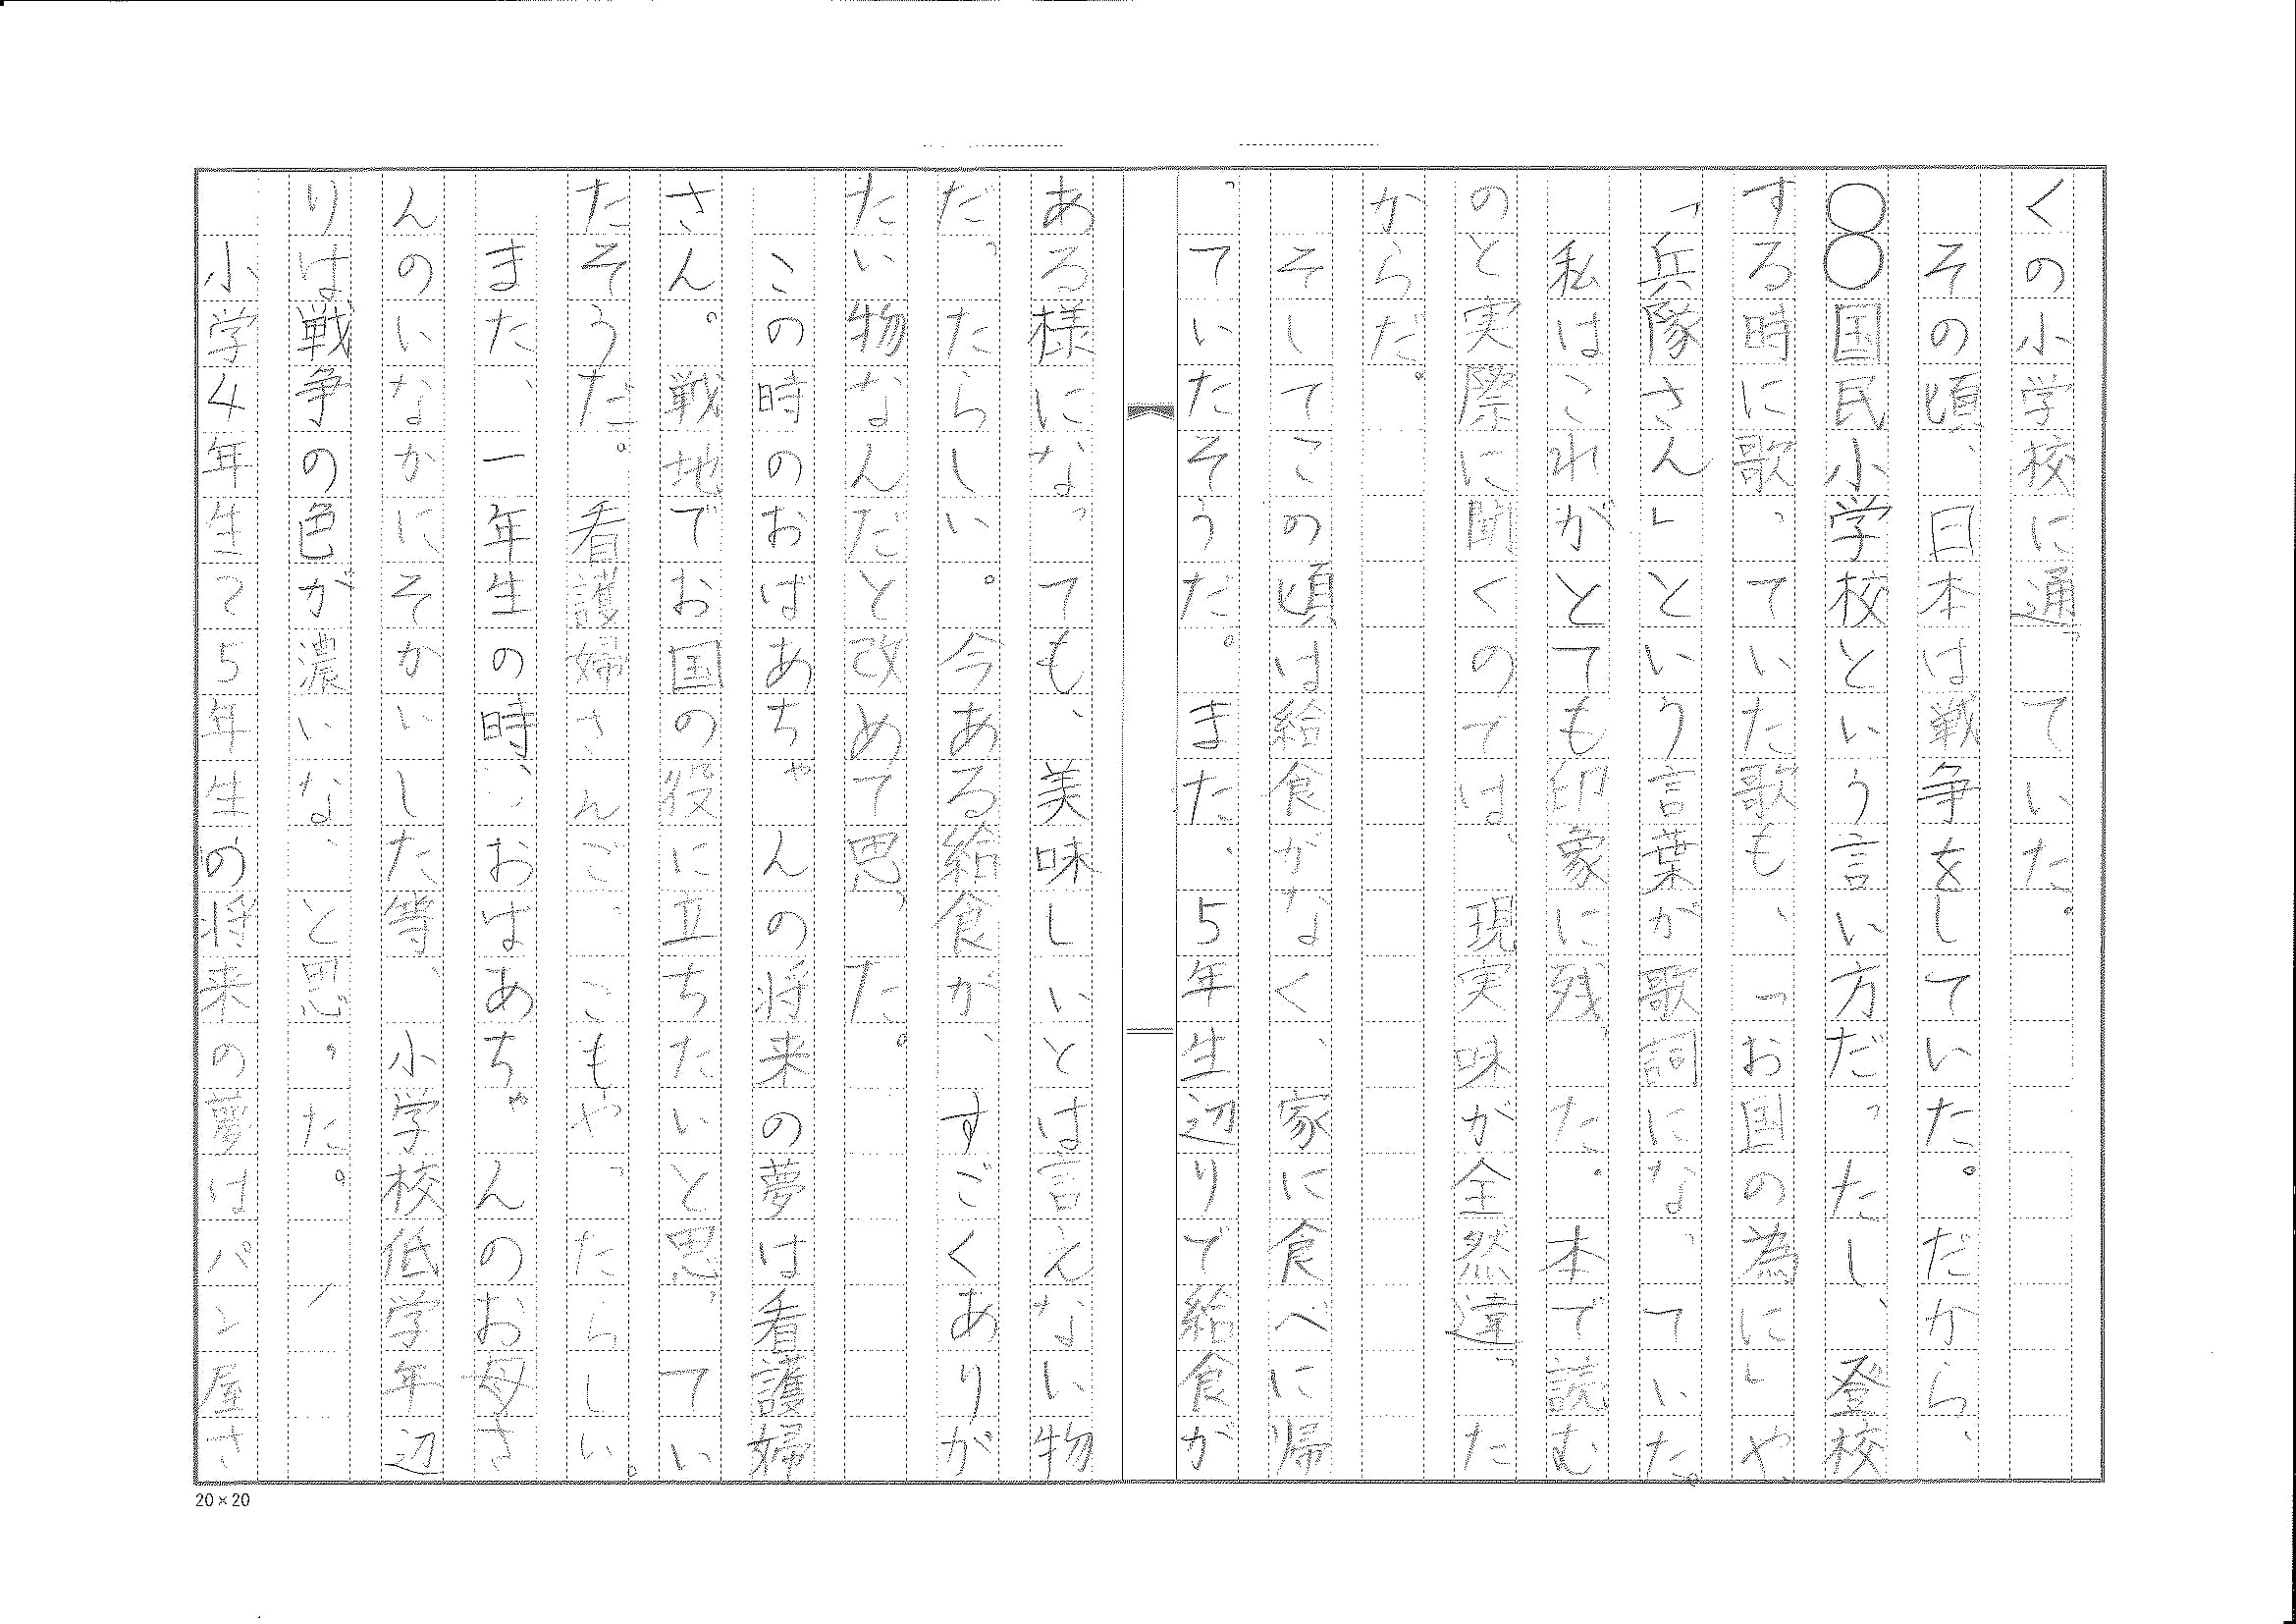 くの小学校に通っていた。
その頃、日本は戦争をしていた。だから、
〇〇国民小学校という言い方だったし、登校
する時に歌っていた歌も、「お国の為に」や、
「兵隊さん」という言葉が歌詞になっていた。
私はこれがとても印象に残った。本で読む
のと実際に聞くのでは、現実味が全然違った
からだ。
そしてこの頃は給食がなく、家に食べに帰
っていたそうだ。また、5年生辺りで給食が
ある様になっても、美味しいとは言えない物
だったらしい。今ある給食が、すごくありが
たい物なんだと改めて思った。
この時のおばあちゃんの将来の夢は看護婦
さん。戦地でお国の役に立ちたいと思ってい
たそうだ。看護婦さんごっこもやったらしい。
また、一年生の時、おばあちゃんのお母さ
んのいなかにそかいした等、小学校低学年辺
りは戦争の色が濃いな、と思った。
小学4年生で5年生の将来の夢はパン屋さ
20×20